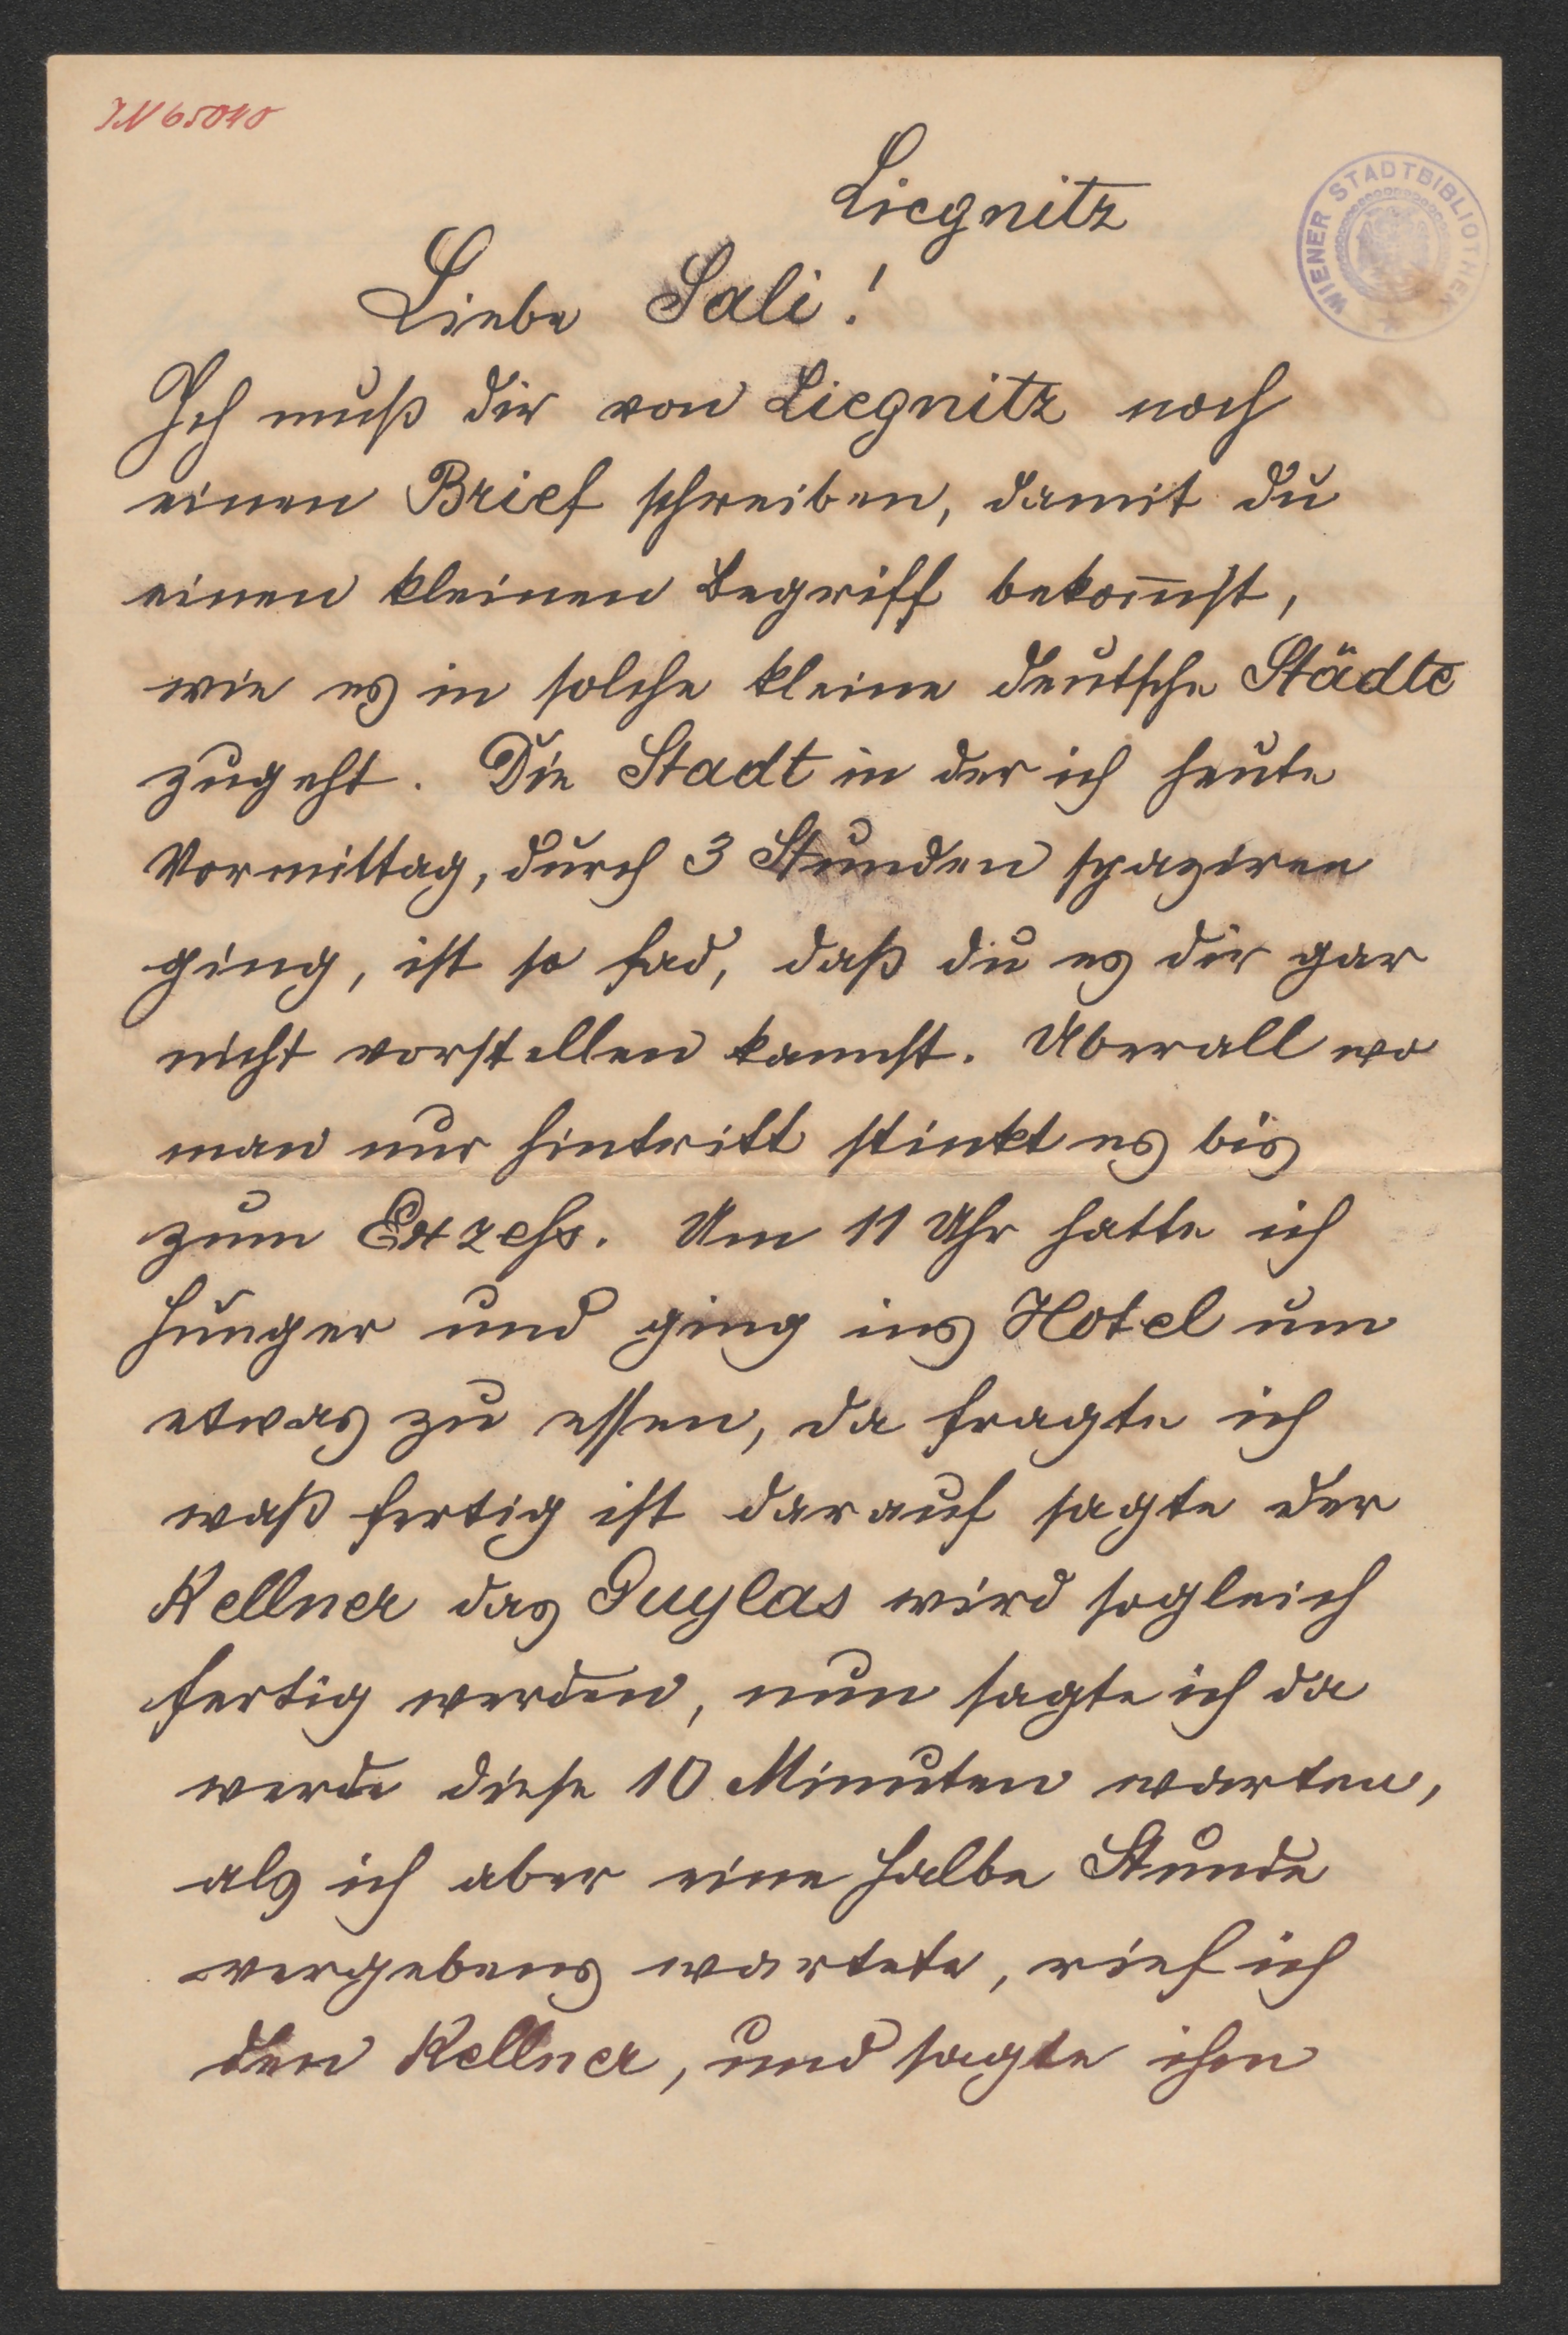 IN 65040
WIENER STADTBIBLIOTHEK
Liegnitz
Liebe Sali!
Ich muß dir von Liegnitz noch
einen Brief schreiben, damit du
einen kleinen Begriff bekom̅st,
wie es in solche kleine deutsche Städte
zugeht. Die Stadt in der ich heute
Vormittag, durch 3 Stunden spaziren
ging, ist so fad, daß du es dir gar
nicht vorstellen kannst. Überall wo
man nur hintritt stinkt es bis
zum Exzehs. Um 11 Uhr hatte ich
Hunger und ging ins Hotel um
etwas zu essen, da fragte ich
waß fertig ist darauf sagte der
Kellner das Guylas wird sogleich
fertig werden, nun sagte ich da
werde diese 10 Minuten warten,
als ich aber eine halbe Stunde
vergebens wartete, rief ich
den Kellner, und sagte ihm